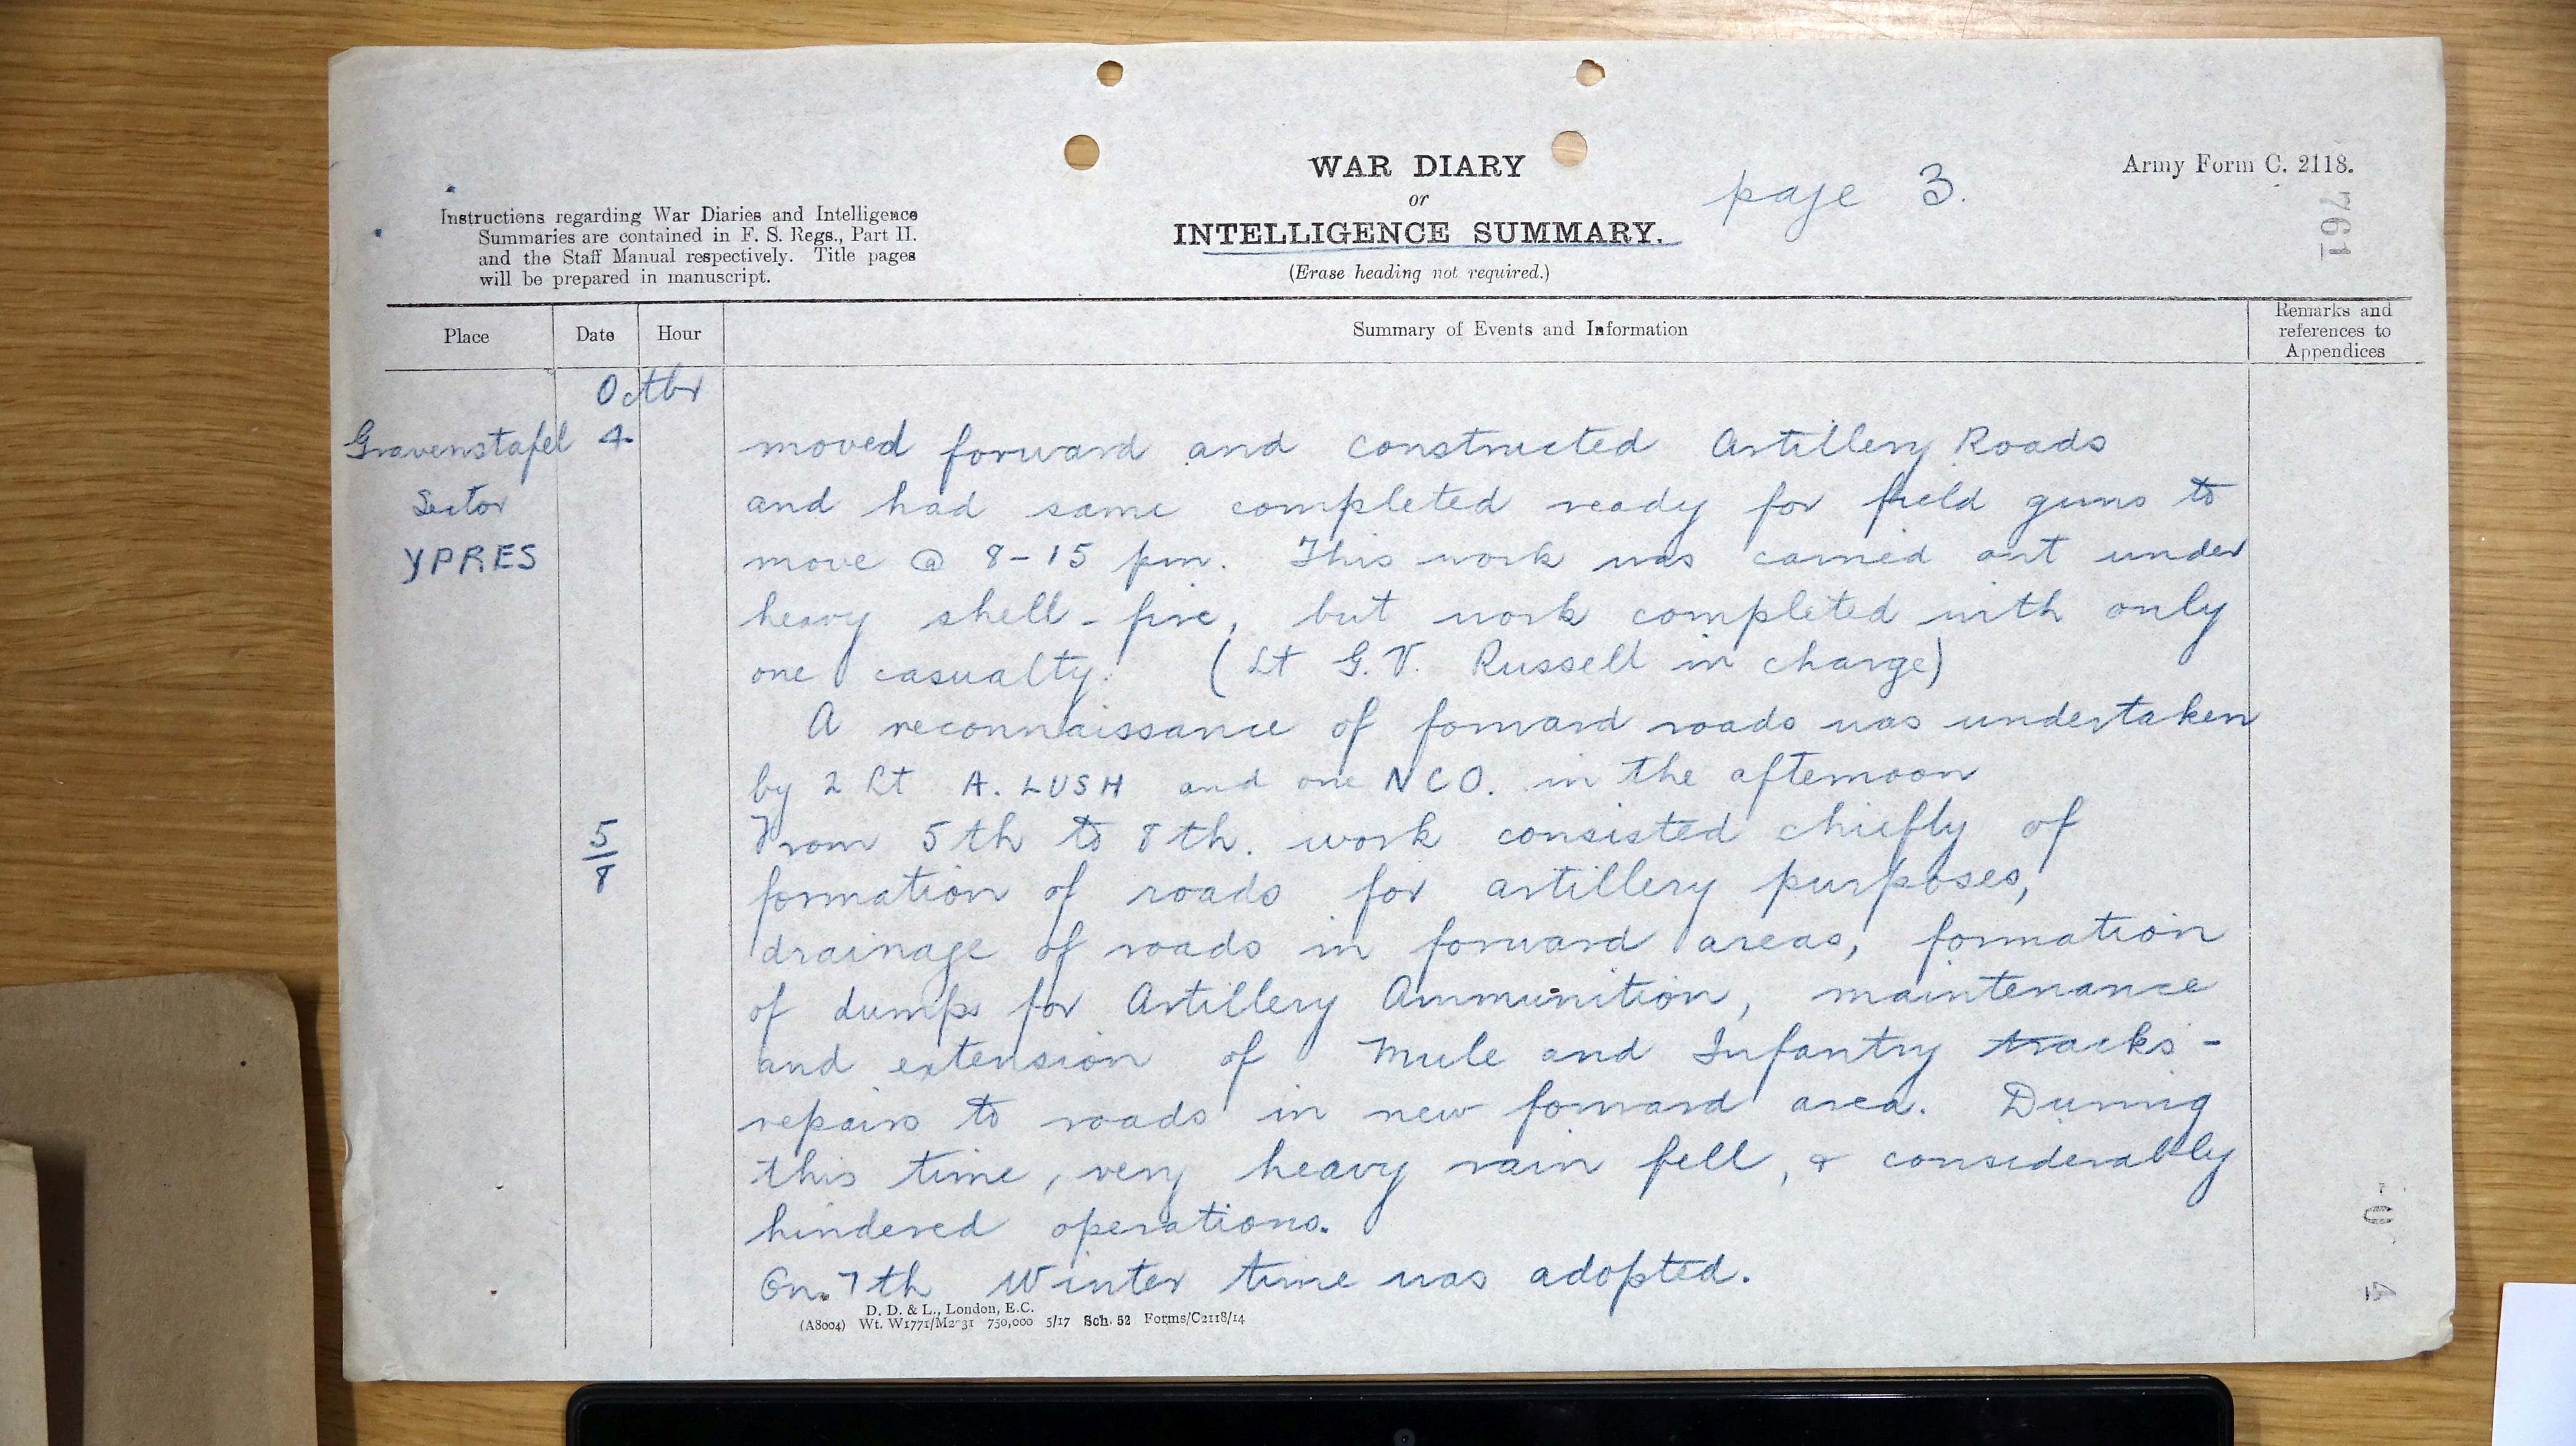 WAR DIARY
or
INTELLIGENCE SUMMARY.
(Erase heading not required.)
page 3.
Army Form C. 2118.
761
Instructions regarding War Diaries and Intelligence
Summaries are contained in F. S. Regs., Part II.
and the Staff Manual respectively. Title pages
will be prepared in manuscript.
Place Date Hour Summary of Events and Information Remarks and
references to
Appendices
Octbr
Gravenstafel 4. moved forward and constructed Artillery Roads
Sector and had same completed ready for field guns to
YPRES move @ 8-15 pm. This work was carried out under
heavy shell-fire, but work completed with only
one casualty. (Lt G.V. Russell in charge)
A reconnaissance of forward roads was undertaken
by 2 Lt A. LUSH and one NCO. in the afternoon
5/8 From 5th to 8th. work consisted chiefly of
formation of roads for artillery purposes,
drainage of roads in forward areas, formation
of dumps for Artillery Ammunition, maintenance
and extension of Mule and Infantry tracks -
repairs to roads in new forward area. During
this time, very heavy rain fell, & considerably
hindered operations.
On 7th Winter time was adopted.
D. D. & L., London, E.C.
(A8004) Wt. W1771/M2-31 750,000 5/17 Sch. 52 Forms/C2118/14